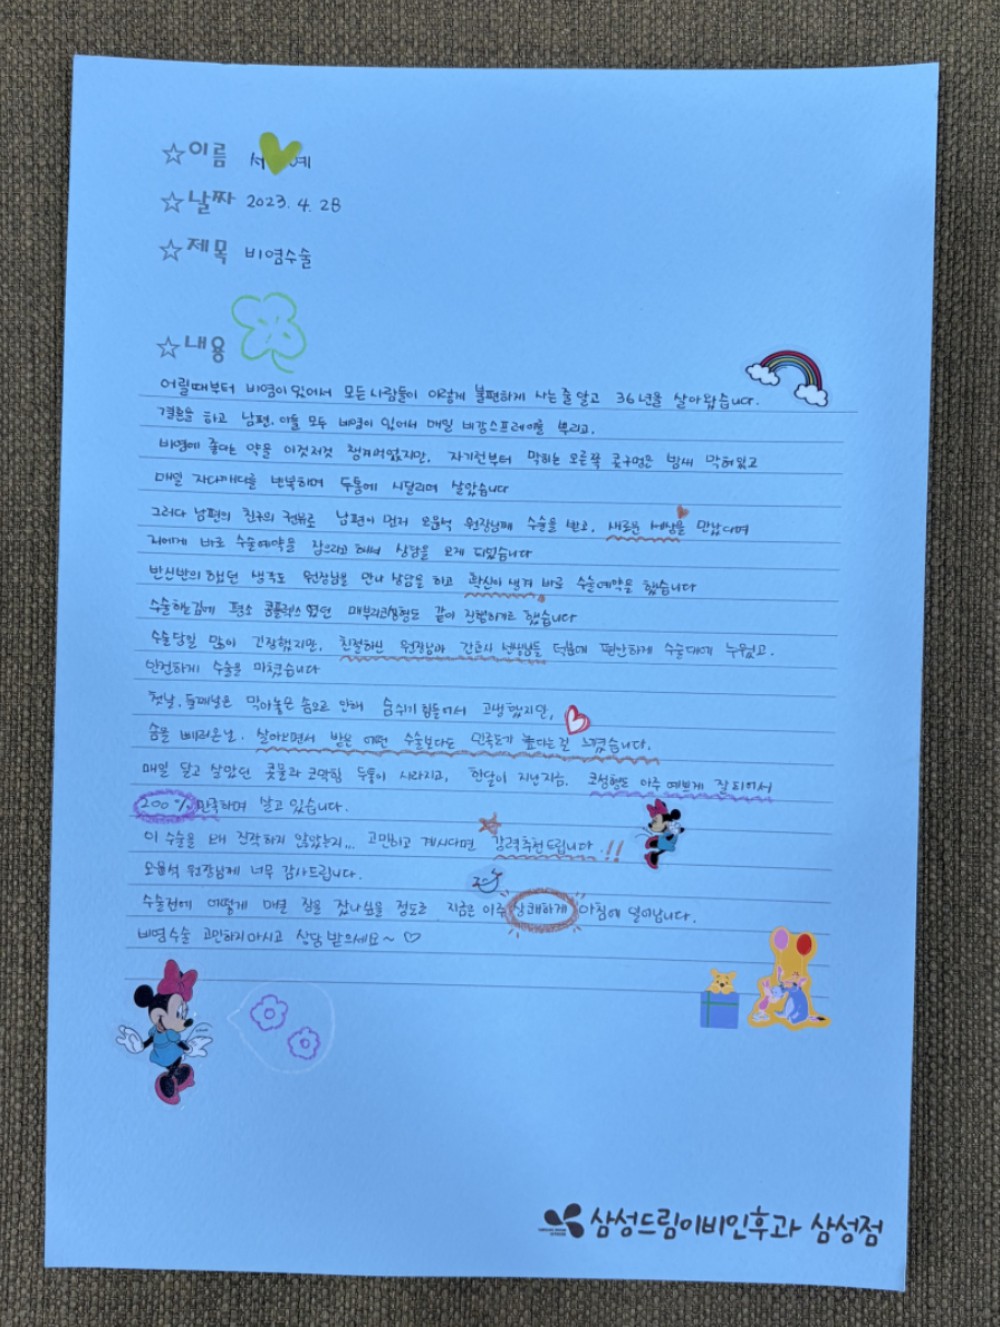 ☆이름 서 예
☆날짜 2023. 4. 28
☆제목 비염수술
☆내용
어릴때부터 비염이 있어서 모든 사람들이 이렇게 불편하게 사는 줄 알고 36년을 살아왔습니다.
결혼을 하고 남편, 아들 모두 비염이 있어서 매일 비강스프레이를 뿌리고,
비염에 좋다는 약을 이것저것 챙겨먹었지만, 자기전부터 막히는 오른쪽 콧구멍은 밤새 막혀있고
매일 자다깨다를 반복하며 두통에 시달리며 살았습니다
그러다 남편의 친구의 권유로 남편이 먼저 원장님께 수술을 받고, 새로운 세상을 만났다며
저에게 바로 수술예약을 잡으라고 해서 상담을 오게 되었습니다
반신반의 했던 생각도 원장님을 만나 상담을 하고 확신이 생겨 바로 수술예약을 했습니다
수술하는김에 평소 콤플렉스였던 매부리코성형도 같이 진행하기로 했습니다
수술당일 많이 긴장했지만, 친절하신 원장님과 간호사 선생님들 덕분에 편안하게 수술대에 누웠고,
안전하게 수술을 마쳤습니다
첫날, 둘째날은 막아놓은 솜으로 인해 숨쉬기 힘들어서 고생했지만,
솜을 빼러온날, 살아오면서 받은 어떤 수술보다도 만족도가 높다는걸 느꼈습니다.
매일 달고 살았던 콧물과 코막힘 두통이 사라지고, 한달이 지난지금, 코성형도 아주 예쁘게 잘 되어서
200% 만족하며 살고 있습니다.
이 수술을 왜 진작하지 않았는지... 고민하고 계시다면 강력추천드립니다.!!
원장님께 너무 감사드립니다.
수술전에 어떻게 매일 잠을 잤나싶을 정도로 지금은 아주 상쾌하게 아침에 일어납니다.
비염수술 고민하지마시고 상담 받으세요~ ♡
삼성드림이비인후과 삼성점